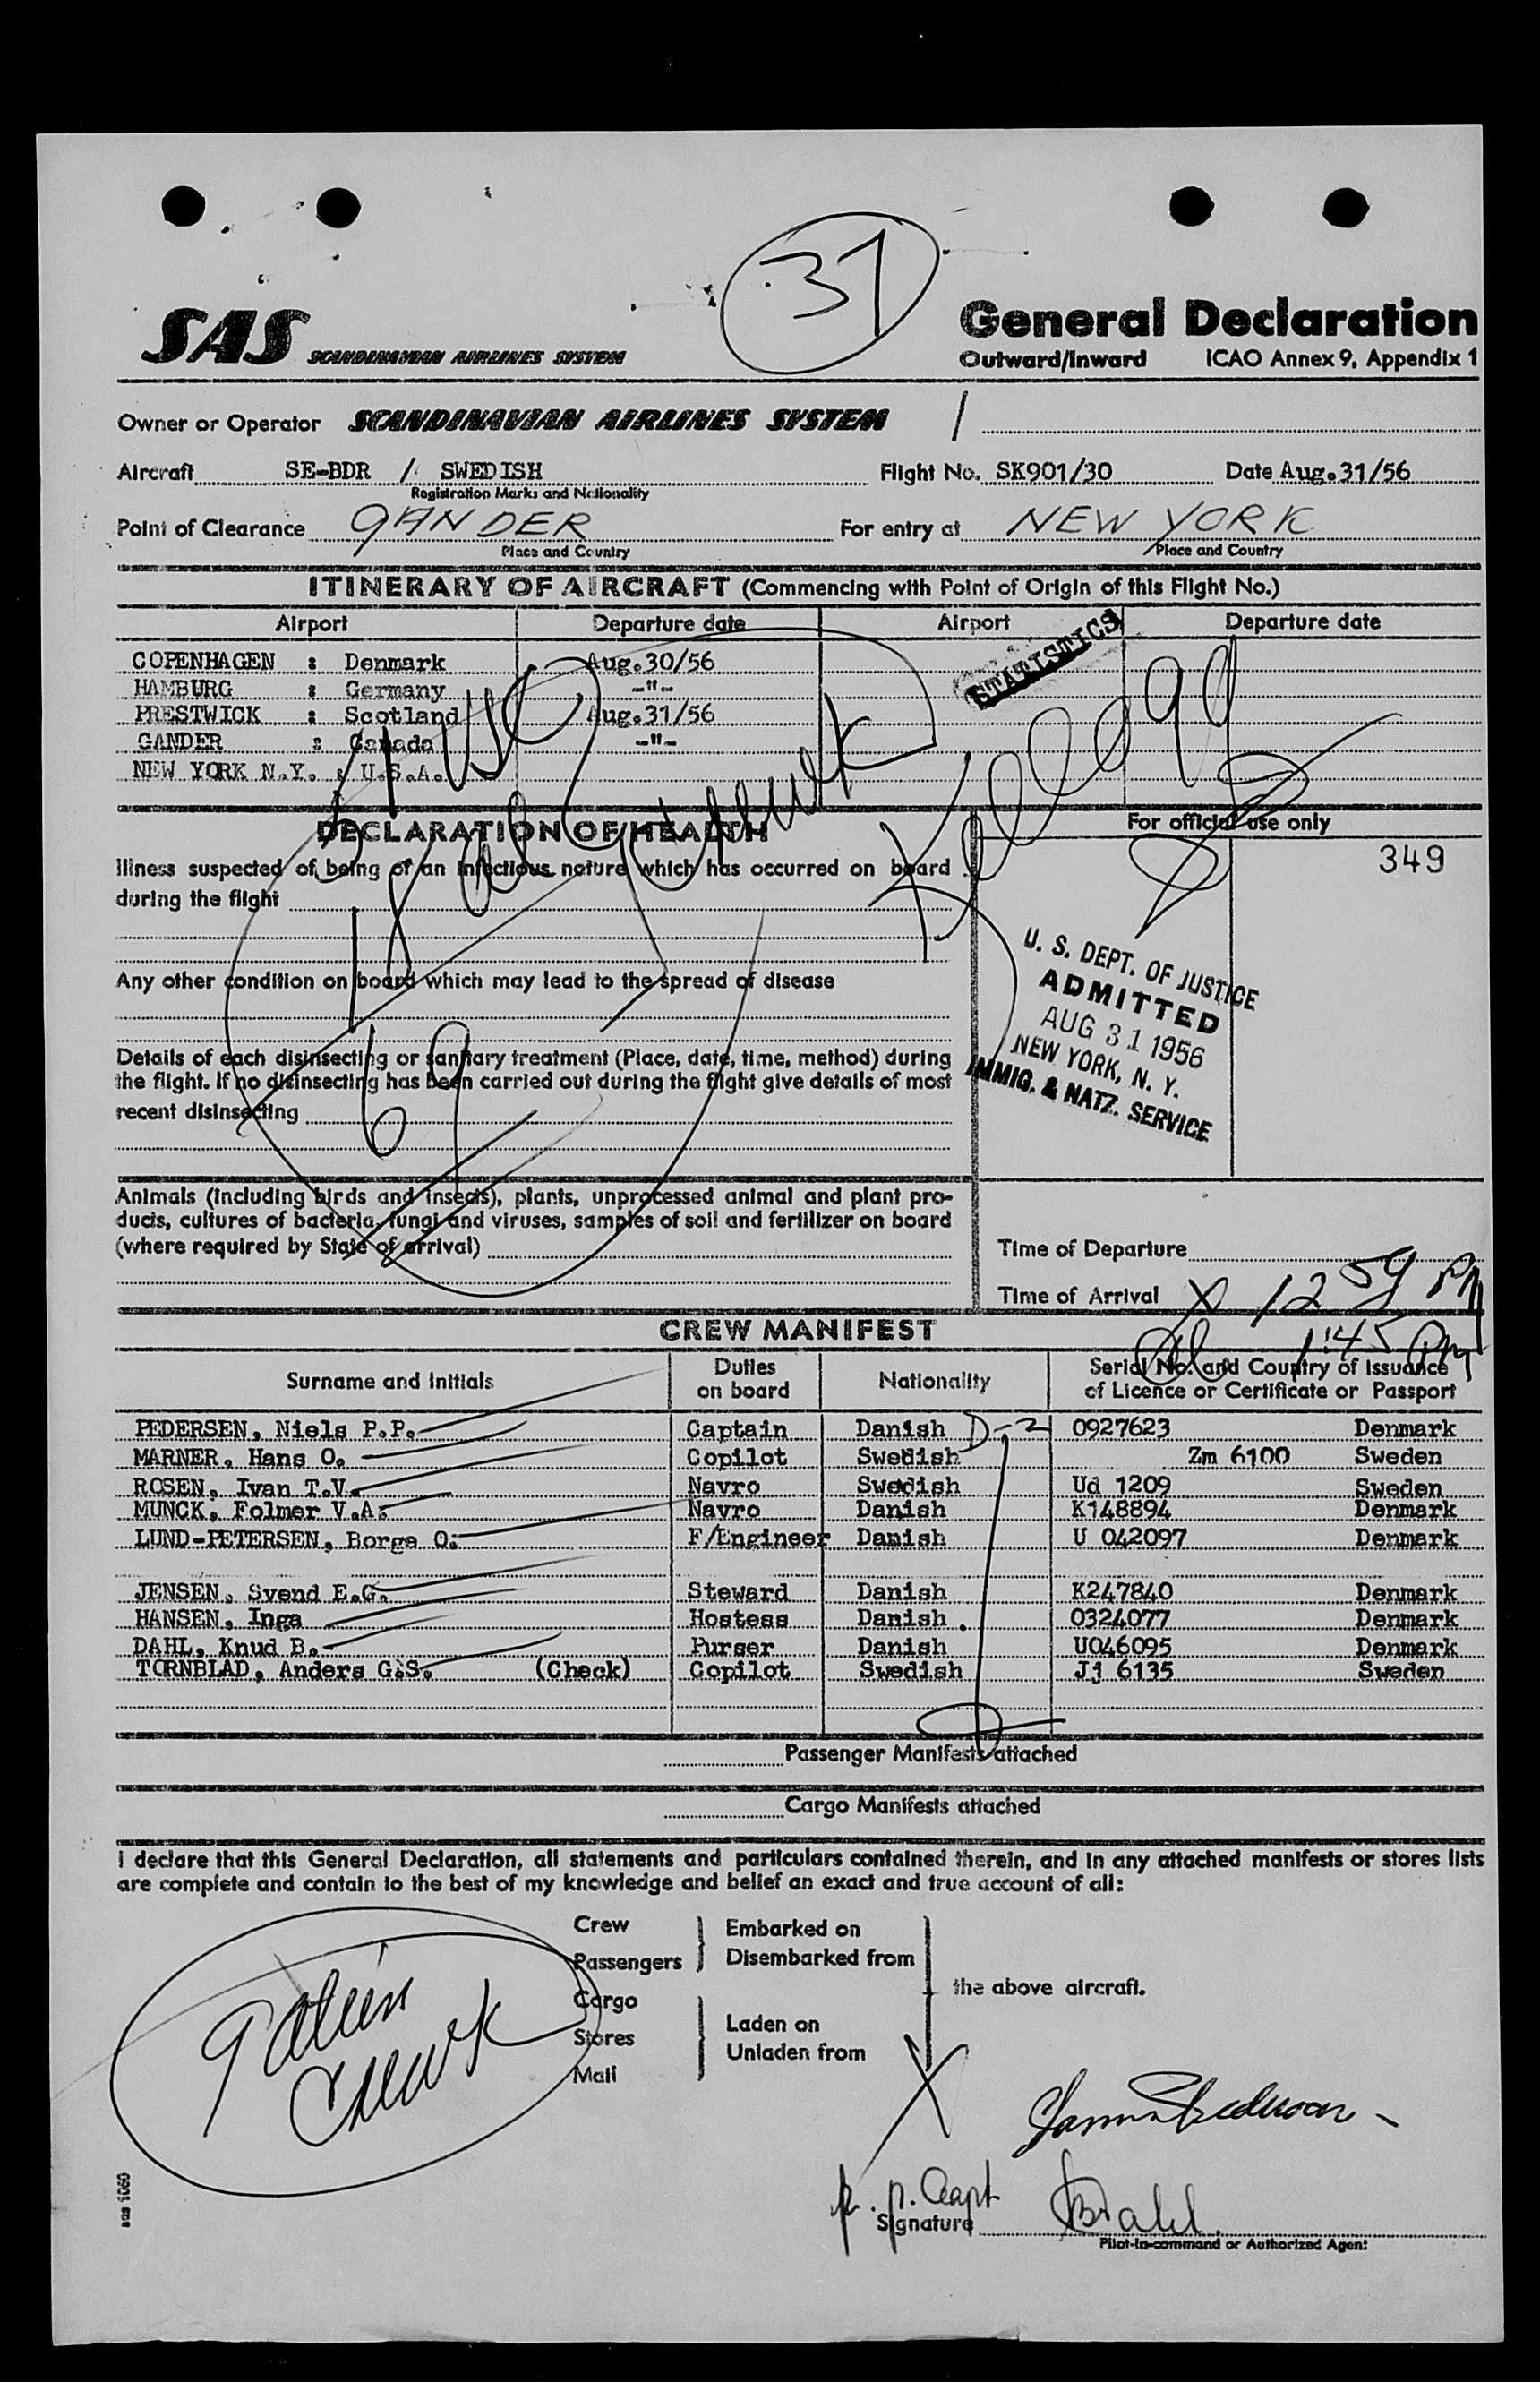 37
SAS SCANDINAVIAN AIRLINES SYSTEM
General Declaration
Outward/Inward ICAO Annex 9, Appendix 1
Owner or Operator SCANDINAVIAN AIRLINES SYSTEM /
Aircraft SE-BDR / SWEDISH Flight No. SK901/30 Date Aug.31/56
Registration Marks and Nationality
Point of Clearance GANDER For entry at NEW YORK
Place and Country Place and Country
ITINERARY OF AIRCRAFT (Commencing with Point of Origin of this Flight No.)
Airport Departure date Airport Departure date
STATISTICS
COPENHAGEN : Denmark Aug.30/56
HAMBURG : Germany -"-
PRESTWICK : Scotland Aug.31/56
GANDER : Canada -"-
NEW YORK N.Y. : U.S.A.
DECLARATION OF HEALTH
For official use only
349
Illness suspected of being of an infectious nature which has occurred on board
during the flight
Any other condition on board which may lead to the spread of disease
Details of each disinsecting or sanitary treatment (Place, date, time, method) during
the flight. If no disinsecting has been carried out during the flight give details of most
recent disinsecting
69
U. S. DEPT. OF JUSTICE
ADMITTED
AUG 31 1956
NEW YORK, N. Y.
IMMIG. & NATZ. SERVICE
Animals (including birds and insects), plants, unprocessed animal and plant pro-
ducts, cultures of bacteria, fungi and viruses, samples of soil and fertilizer on board
(where required by State of arrival)
Time of Departure
Time of Arrival X 12 59 PM
1:45 PM
CREW MANIFEST
Surname and Initials Duties on board Nationality Serial No. and Country of Issuance
of Licence or Certificate or Passport
PEDERSEN, Niels P.P. Captain Danish D-2 0927623 Denmark
MARNER, Hans O. Copilot Swedish Zm 6100 Sweden
ROSEN, Ivan T.V. Navro Swedish Ud 1209 Sweden
MUNCK, Folmer V.A. Navro Danish K148894 Denmark
LUND-PETERSEN, Borge O. F/Engineer Danish U 042097 Denmark
JENSEN, Svend E.G. Steward Danish K247840 Denmark
HANSEN, Inga Hostess Danish. 0324077 Denmark
DAHL, Knud B. Purser Danish U046095 Denmark
TORNBLAD, Anders G.S. (Check) Copilot Swedish Jj 6135 Sweden
Passenger Manifests attached
Cargo Manifests attached
I declare that this General Declaration, all statements and particulars contained therein, and in any attached manifests or stores lists
are complete and contain to the best of my knowledge and belief an exact and true account of all:
Crew
Passengers
Embarked on
Disembarked from
Cargo
Stores
Mail
Laden on
Unladen from
the above aircraft.
X
p. p. Capt
Signature
Pilot-in-command or Authorized Agent
sas 1060